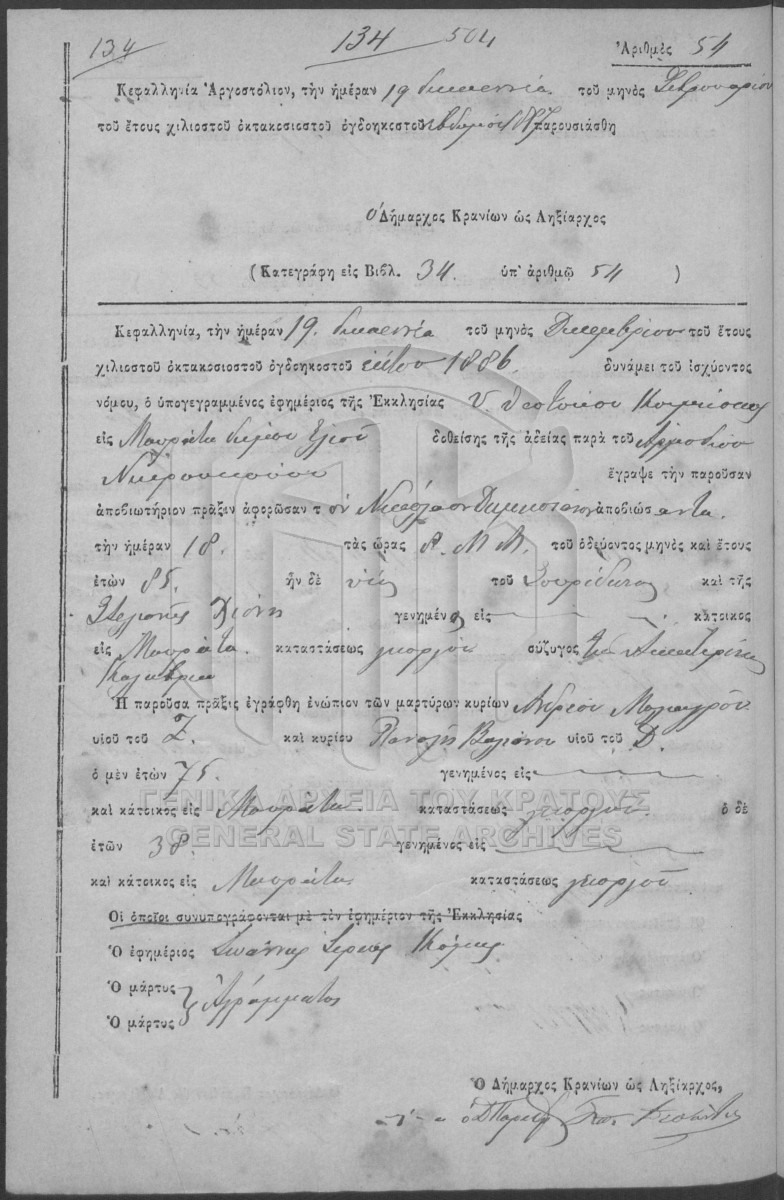 134 134 504 Ἀριθμὸς 54
Κεφαλληνία Ἀργοστόλιον, τὴν ἡμέραν 19 δεκαεννέα τοῦ μηνὸς Φεβρουαρίου
τοῦ ἔτους χιλιοστοῦ ὀκτακοσιοστοῦ ὀγδοηκοστοῦ ἑβδόμου παρουσιάσθη
Ὁ Δήμαρχος Κρανίων ὡς Ληξίαρχος
(Κατεγράφη εἰς Βιβλ. 34. ὑπ' ἀριθμῷ 54 )
Κεφαλληνία, τὴν ἡμέραν 19. δεκαεννέα τοῦ μηνὸς Δεκεμβρίου τοῦ ἔτους
χιλιοστοῦ ὀκτακοσιοστοῦ ὀγδοηκοστοῦ ἕκτου 1886. δυνάμει τοῦ ἰσχύοντος
νόμου, ὁ ὑπογεγραμμένος ἐφημέριος τῆς Ἐκκλησίας Υ. Θεοτόκου
εἰς Μαυράτα δήμου Ἐλιοῦ δοθείσης τῆς ἀδείας παρὰ τοῦ Ἁρμοδίου
ἔγραψε τὴν παροῦσαν
ἀποβιωτήριον πρᾶξιν ἀφορῶσαν τὸν Νικόλαον ἀποβιώσαντα.
τὴν ἡμέραν 18. τὰς ὥρας 8. Μ. Μ. τοῦ ὁδεύοντος μηνὸς καὶ ἔτους
ἐτῶν 85. ἦν δὲ υἱὸς τοῦ Σπυρίδωνος καὶ τῆς
Στελιανῆς γενημένος εἰς κάτοικος
εἰς Μαυράτα. καταστάσεως γεοργὸς σύζυγος τῆς Αἰκατερίνης
Ἡ παροῦσα πρᾶξις ἐγράφη ἐνώπιον τῶν μαρτύρων κυρίων Ἀνδρέου
υἱοῦ τοῦ Ζ. καὶ κυρίου Παναγῆ υἱοῦ τοῦ Δ.
ὁ μὲν ἐτῶν 75. γενημένος εἰς
καὶ κάτοικος εἰς Μαυράτα. καταστάσεως γεοργοῦ. ὁ δὲ
ΓΕΝΙΚΑ ΑΡΧΕΙΑ ΤΟΥ ΚΡΑΤΟΥΣ
GENERAL STATE ARCHIVES
ἐτῶν 38. γενημένος εἰς
καὶ κάτοικος εἰς Μαυράτα καταστάσεως γεοργοῦ
Οἱ ὁποῖοι συνυπογράφονται μὲ τὸν ἐφημέριον τῆς Ἐκκλησίας
Ὁ ἐφημέριος Ἰωάννης Ἱερεὺς
Ὁ μάρτυς
Ὁ μάρτυς Ἀγράμματος
Ὁ Δήμαρχος Κρανίων ὡς Ληξίαρχος,